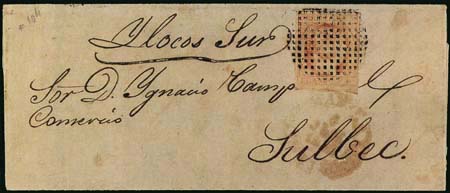 Ylocos Sur
Sor D. Ygnacio Camps
Comercio
Sulbec.